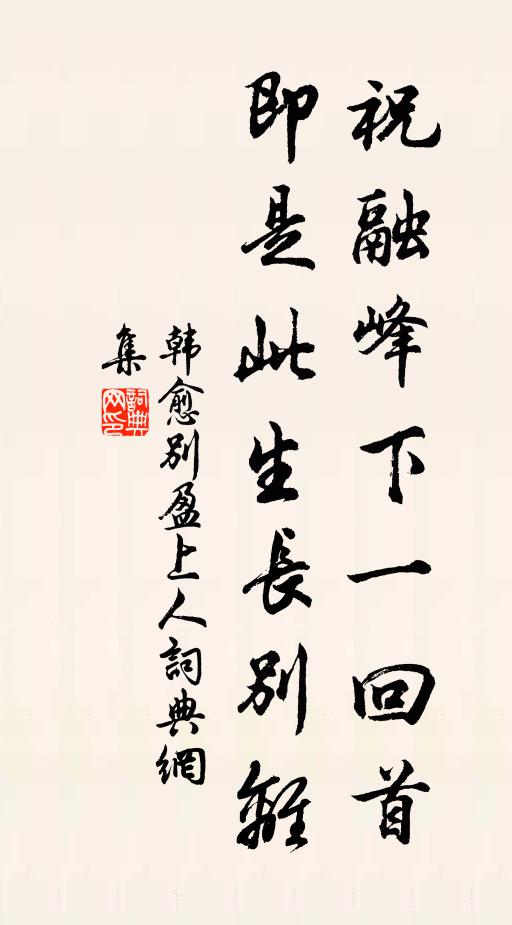 祝融峰下一回首
即是此生長別離
韩愈别盈上人詞典網
集
詞典
网印